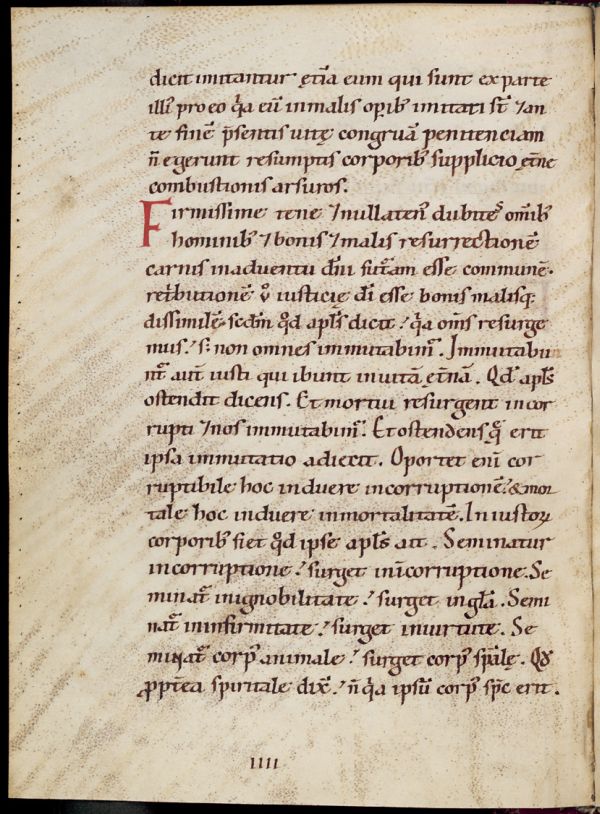 dicit imitantur etiā eum qui sunt ex parte
illi᾽ pro eo q̄a eū in malis op̄ib᾽ imitati st̄ ⁊ an
te finē p̄sentis uitę congruā penitenciam
n̄ egerunt resumptis corporib᾽ supplicio et̄ne
combustionis arsuros.
Firmissime tene ⁊ nullaten᾽ dubites om̄ib᾽
hominib᾽ ⁊ bonis ⁊ malis resurrectionē
carnis in aduentu dn̄i fut᾽am esse communē.
ret᾽butionē ů iusticię dī esse bonis malisq;
dissimilē. scdm̄ qd̊ apl̄s dicit. q̄a om̄s resurge
mus. s; non omnes immutabim᾽. Immutabu
nt᾽ aut̄ iusti qui ibunt in uitā et̄nā. Qd̄ apl̄s
ostendit dicens. Et mortui resurgent incor
rupti ⁊ nos immutabim᾽. Et ostendens q̊ erit
ipsa immutatio adiecit. Oportet enī cor
ruptibile hoc induere incorruptionē. & mor
tale hoc induere inmortalitatē. In iustoꝝ
corporib᾽ fiet qd̊ ipse apl̄s ait. Seminatur
in corruptione. surget in incorruptione. Se
minat᾽ in ignobilitate. surget in gl̄a. Semi
nat᾽ in infirmitate. surget in uirtute. Se
minat᾽ corp᾽ animale. surget corp᾽ sp̄ale. Qd̄
ꝓpt̄ea spiritale dix᾽. n̄ q̄a ipsū corp᾽ sp̄c erit.
IIII